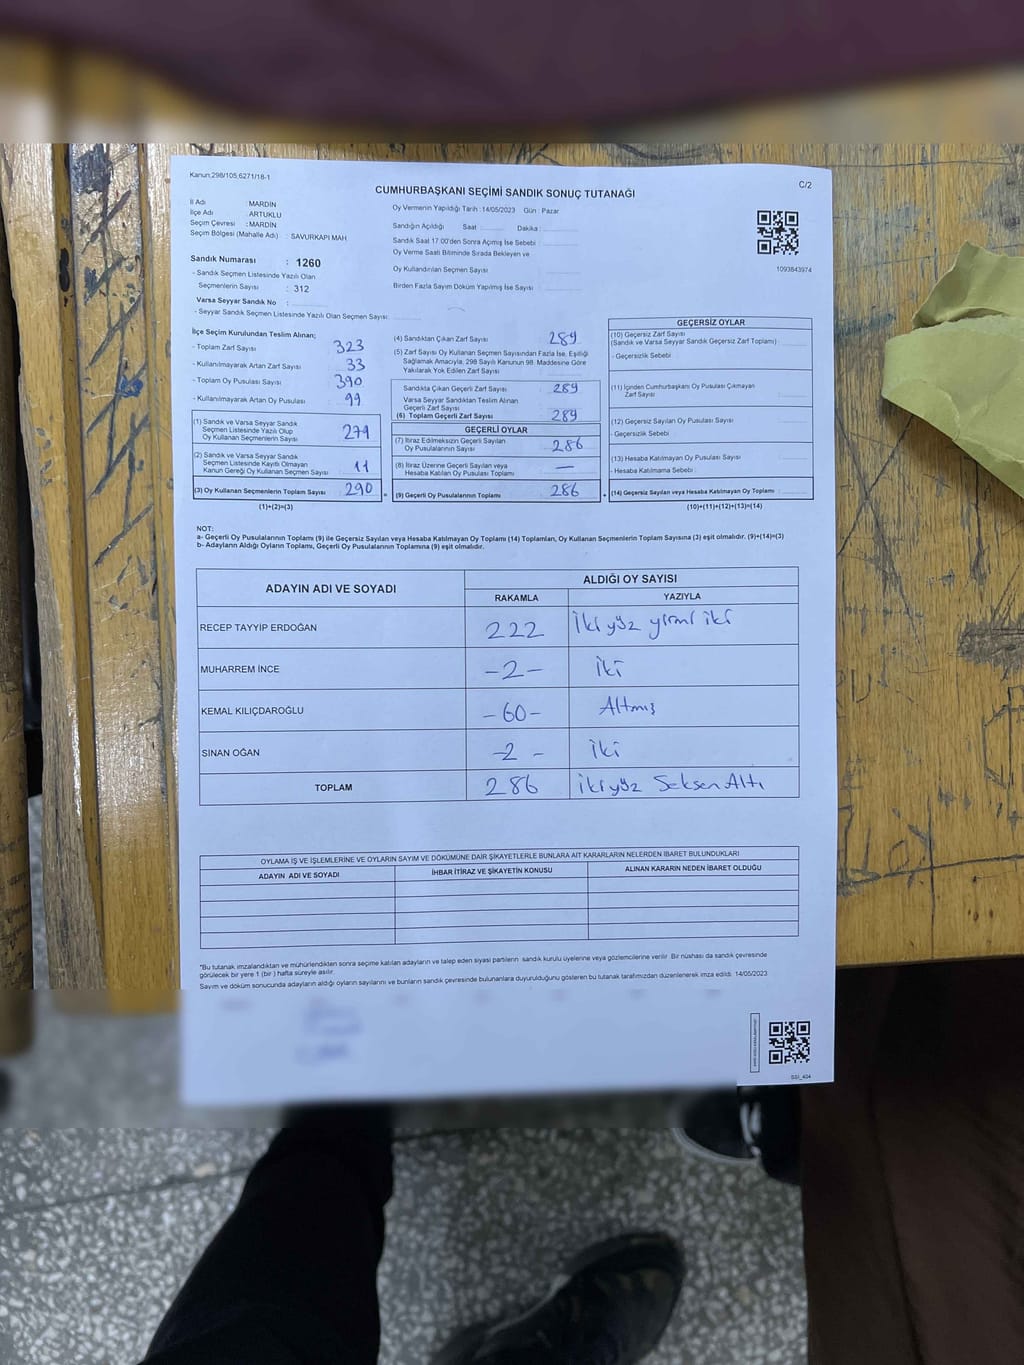 Kanun;298/105,6271/18-1
C/2
CUMHURBAŞKANI SEÇİMİ SANDIK SONUÇ TUTANAĞI
İl Adı : MARDİN
İlçe Adı : ARTUKLU
Seçim Çevresi : MARDİN
Seçim Bölgesi (Mahalle Adı) : SAVURKAPI MAH
Sandık Numarası : 1260
- Sandık Seçmen Listesinde Yazılı Olan
Seçmenlerin Sayısı : 312
Varsa Seyyar Sandık No :
- Seyyar Sandık Seçmen Listesinde Yazılı Olan Seçmen Sayısı:
Oy Vermenin Yapıldığı Tarih : 14/05/2023 Gün : Pazar
Sandığın Açıldığı Saat : Dakika :
Sandık Saat 17:00'den Sonra Açımış İse Sebebi :
Oy Verme Saati Bitiminde Sırada Bekleyen ve
Oy Kullandırılan Seçmen Sayısı
Birden Fazla Sayım Döküm Yapılmış İse Sayısı :
1093843974
İlçe Seçim Kurulundan Teslim Alınan;
- Toplam Zarf Sayısı : 323
- Kullanılmayarak Artan Zarf Sayısı : 33
- Toplam Oy Pusulası Sayısı : 390
- Kullanılmayarak Artan Oy Pusulası : 99
(1) Sandık ve Varsa Seyyar Sandık
Seçmen Listesinde Yazılı Olup
Oy Kullanan Seçmenlerin Sayısı 279
(2) Sandık ve Varsa Seyyar Sandık
Seçmen Listesinde Kayıtlı Olmayan
Kanun Gereği Oy Kullanan Seçmen Sayısı 11
(3) Oy Kullanan Seçmenlerin Toplam Sayısı 290
(1)+(2)=(3)
(4) Sandıktan Çıkan Zarf Sayısı 289
(5) Zarf Sayısı Oy Kullanan Seçmen Sayısından Fazla İse, Eşitliği
Sağlamak Amacıyla, 298 Sayılı Kanunun 98. Maddesine Göre
Yakılarak Yok Edilen Zarf Sayısı
Sandıkta Çıkan Geçerli Zarf Sayısı 289
Varsa Seyyar Sandıktan Teslim Alınan
Geçerli Zarf Sayısı
(6) Toplam Geçerli Zarf Sayısı 289
GEÇERLİ OYLAR
(7) İtiraz Edilmeksizin Geçerli Sayılan
Oy Pusulalarının Sayısı 286
(8) İtiraz Üzerine Geçerli Sayılan veya
Hesaba Katılan Oy Pusulası Toplamı —
= (9) Geçerli Oy Pusulalarının Toplamı 286
GEÇERSİZ OYLAR
(10) Geçersiz Zarf Sayısı
(Sandık ve Varsa Seyyar Sandık Geçersiz Zarf Toplamı) :
- Geçersizlik Sebebi :
(11) İçinden Cumhurbaşkanı Oy Pusulası Çıkmayan
Zarf Sayısı
(12) Geçersiz Sayılan Oy Pusulası Sayısı :
- Geçersizlik Sebebi :
(13) Hesaba Katılmayan Oy Pusulası Sayısı :
- Hesaba Katılmama Sebebi :
+ (14) Geçersiz Sayılan veya Hesaba Katılmayan Oy Toplamı :
(10)+(11)+(12)+(13)=(14)
NOT:
a- Geçerli Oy Pusulalarının Toplamı (9) ile Geçersiz Sayılan veya Hesaba Katılmayan Oy Toplamı (14) Toplamları, Oy Kullanan Seçmenlerin Toplam Sayısına (3) eşit olmalıdır. (9)+(14)=(3)
b- Adayların Aldığı Oyların Toplamı, Geçerli Oy Pusulalarının Toplamına (9) eşit olmalıdır.
ADAYIN ADI VE SOYADI
ALDIĞI OY SAYISI
RAKAMLA YAZIYLA
RECEP TAYYİP ERDOĞAN 222 İkiyüz yirmi iki
MUHARREM İNCE -2- iki
KEMAL KILIÇDAROĞLU -60- Altmış
SİNAN OĞAN -2- iki
TOPLAM 286 ikiyüz Seksen Altı
OYLAMA İŞ VE İŞLEMLERİNE VE OYLARIN SAYIM VE DÖKÜMÜNE DAİR ŞİKAYETLERLE BUNLARA AİT KARARLARIN NELERDEN İBARET BULUNDUKLARI
ADAYIN ADI VE SOYADI İHBAR İTİRAZ VE ŞİKAYETİN KONUSU ALINAN KARARIN NEDEN İBARET OLDUĞU
*Bu tutanak imzalandıktan ve mühürlendikten sonra seçime katılan adayların ve talep eden siyasi partilerin sandık kurulu üyelerine veya gözlemcilerine verilir. Bir nüshası da sandık çevresinde
görülecek bir yere 1 (bir ) hafta süreyle asılır.
Sayım ve döküm sonucunda adayların aldığı oyların sayılarını ve bunların sandık çevresinde bulunanlara duyurulduğunu gösteren bu tutanak tarafımızdan düzenlenerek imza edildi. 14/05/2023
SSI_404